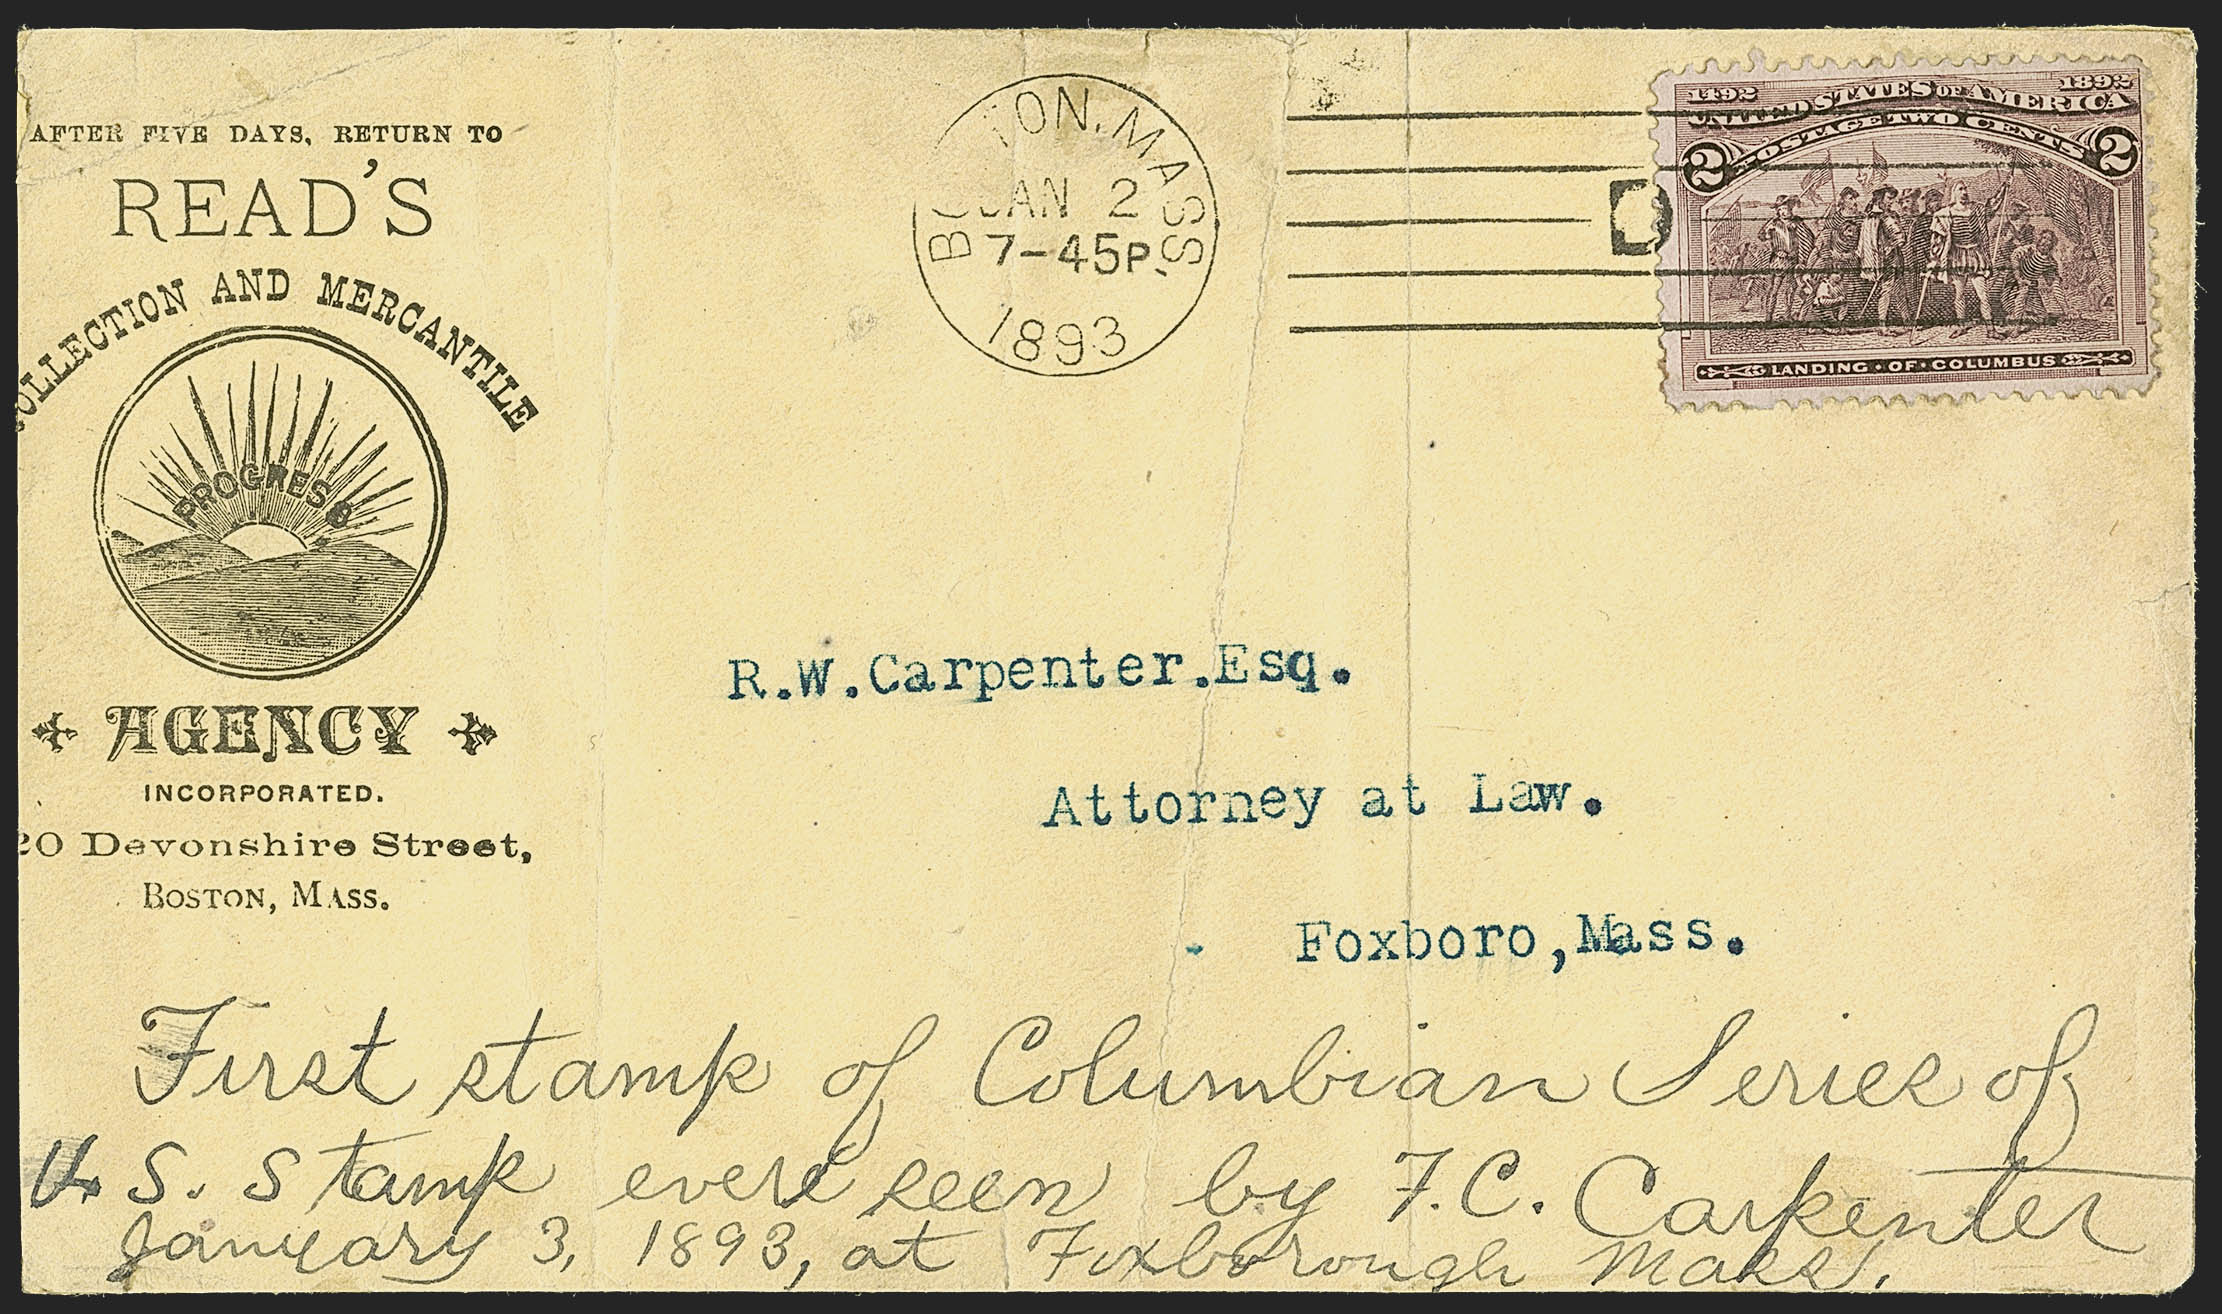 AFTER FIVE DAYS, RETURN TO
READ'S
COLLECTION AND MERCANTILE
PROGRESS
AGENCY
INCORPORATED.
20 Devonshire Street,
BOSTON, MASS.
BOSTON, MASS
JAN 2
7-45P.
1893
1492 1892
UNITED STATES OF AMERICA
POSTAGE TWO CENTS
2 2
LANDING · OF · COLUMBUS
R.W.Carpenter.Esq.
Attorney at Law.
Foxboro,Mass.
First stamp of Columbian Series of
U. S. Stamp ever seen by F. C. Carpenter
January 3, 1893, at Foxborough Mass.